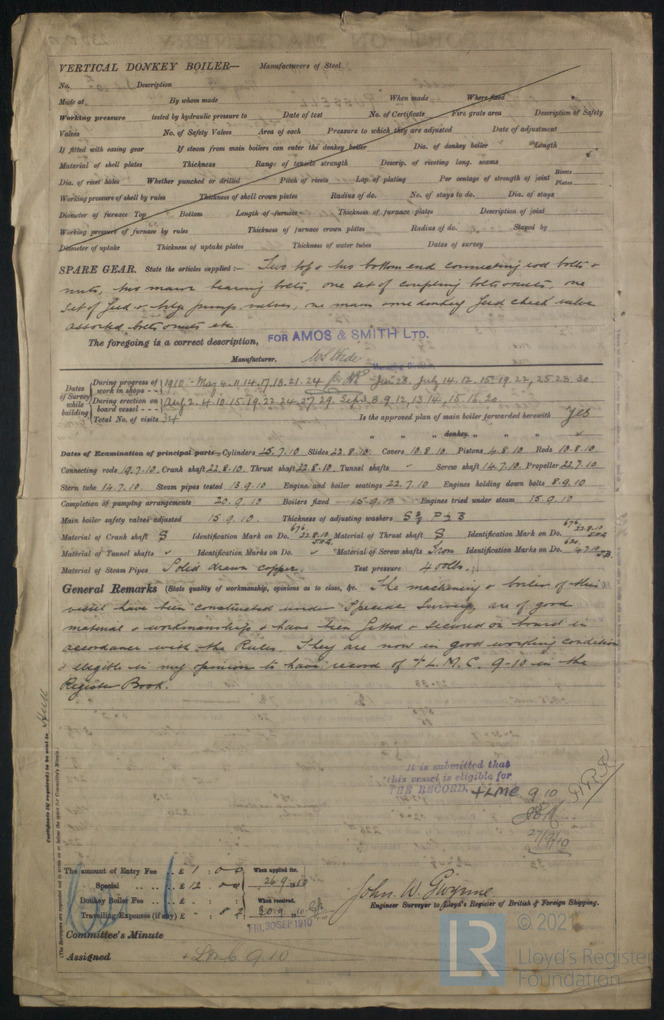 VERTICAL DONKEY BOILER— Manufacturers of Steel
No. Description
Made at By whom made When made Where fixed
Working pressure tested by hydraulic pressure to Date of test No. of Certificate Fire grate area Description of Safety
Valves No. of Safety Valves Area of each Pressure to which they are adjusted Date of adjustment
If fitted with easing gear If steam from main boilers can enter the donkey boiler Dia. of donkey boiler Length
Material of shell plates Thickness Range of tensile strength Descrip. of riveting long. seams
Dia. of rivet holes Whether punched or drilled Pitch of rivets Lap of plating Per centage of strength of joint Rivets Plates
Working pressure of shell by rules Thickness of shell crown plates Radius of do. No. of stays to do. Dia. of stays
Diameter of furnace Top Bottom Length of furnace Thickness of furnace plates Description of joint
Working pressure of furnace by rules Thickness of furnace crown plates Radius of do. Stayed by
Diameter of uptake Thickness of uptake plates Thickness of water tubes Dates of survey
SPARE GEAR. State the articles supplied:— Two top & two bottom end connecting rod bolts &
nuts, two main bearing bolts, one set of coupling bolts & nuts, one
set of feed & bilge pump valves, one main & one donkey feed check valve
assorted bolts & nuts etc
The foregoing is a correct description, FOR AMOS & SMITH LTD.
Manufacturer.
Dates of Survey while building
During progress of work in shops - - 1910 - May 4. 11. 14. 17. 18. 21. 24 Jun 28. July 14. 12. 15. 19. 22, 25. 28. 30
During erection on board vessel - - - Aug 2. 4. 10. 15. 19. 22. 24. 27. 29. Sep 3. 8. 9. 12, 13. 14. 15. 16. 20
Total No. of visits 34 Is the approved plan of main boiler forwarded herewith Yes
" " " donkey " " "
Dates of Examination of principal parts—Cylinders 25.7.10 Slides 22.8.10 Covers 10.8.10 Pistons 4.8.10 Rods 10.8.10
Connecting rods 19.7.10 Crank shaft 22.8.10 Thrust shaft 22.8.10 Tunnel shafts Screw shaft 14.7.10 Propeller 22.7.10
Stern tube 14.7.10 Steam pipes tested 13.9.10 Engine and boiler seatings 22.7.10 Engines holding down bolts 8.9.10
Completion of pumping arrangements 20.9.10 Boilers fixed 15.9.10 Engines tried under steam 15.9.10
Main boiler safety valves adjusted 15.9.10 Thickness of adjusting washers
Material of Crank shaft S Identification Mark on Do. 676 22.8.10 Material of Thrust shaft S Identification Mark on Do. 676 22.8.10
Material of Tunnel shafts Identification Marks on Do. Material of Screw shafts Iron Identification Marks on Do. 4.7.10
Material of Steam Pipes Solid drawn copper. Test pressure 400 lbs.
General Remarks (State quality of workmanship, opinions as to class, &c. The machinery & boiler of this
vessel have been constructed under Special Survey, are of good
material & workmanship & have been fitted & secured on board in
accordance with the Rules. They are now in good working condition
& eligible in my opinion to have record of + L.M.C. 9-10 in the
Register Book.
Certificate (if required) to be sent to Hull
(The Surveyors are requested not to write on or below the space for Committee's Minute.)
It is submitted that
this vessel is eligible for
THE RECORD. + LMC 9.10
27/9/10
The amount of Entry Fee . . £ 1 : 0 : 0 When applied for,
Special . . . . £ 12 : 0 : 0 26.9.10
Donkey Boiler Fee . . . £ : : When received,
Travelling Expenses (if any) £ : 8 : 30.9.10
FRI. 30 SEP 1910
John. W. Gwynne
Engineer Surveyor to Lloyd's Register of British & Foreign Shipping.
Committee's Minute
Assigned + LMC 9.10
LR
© 202
Lloyd's Register
Foundation